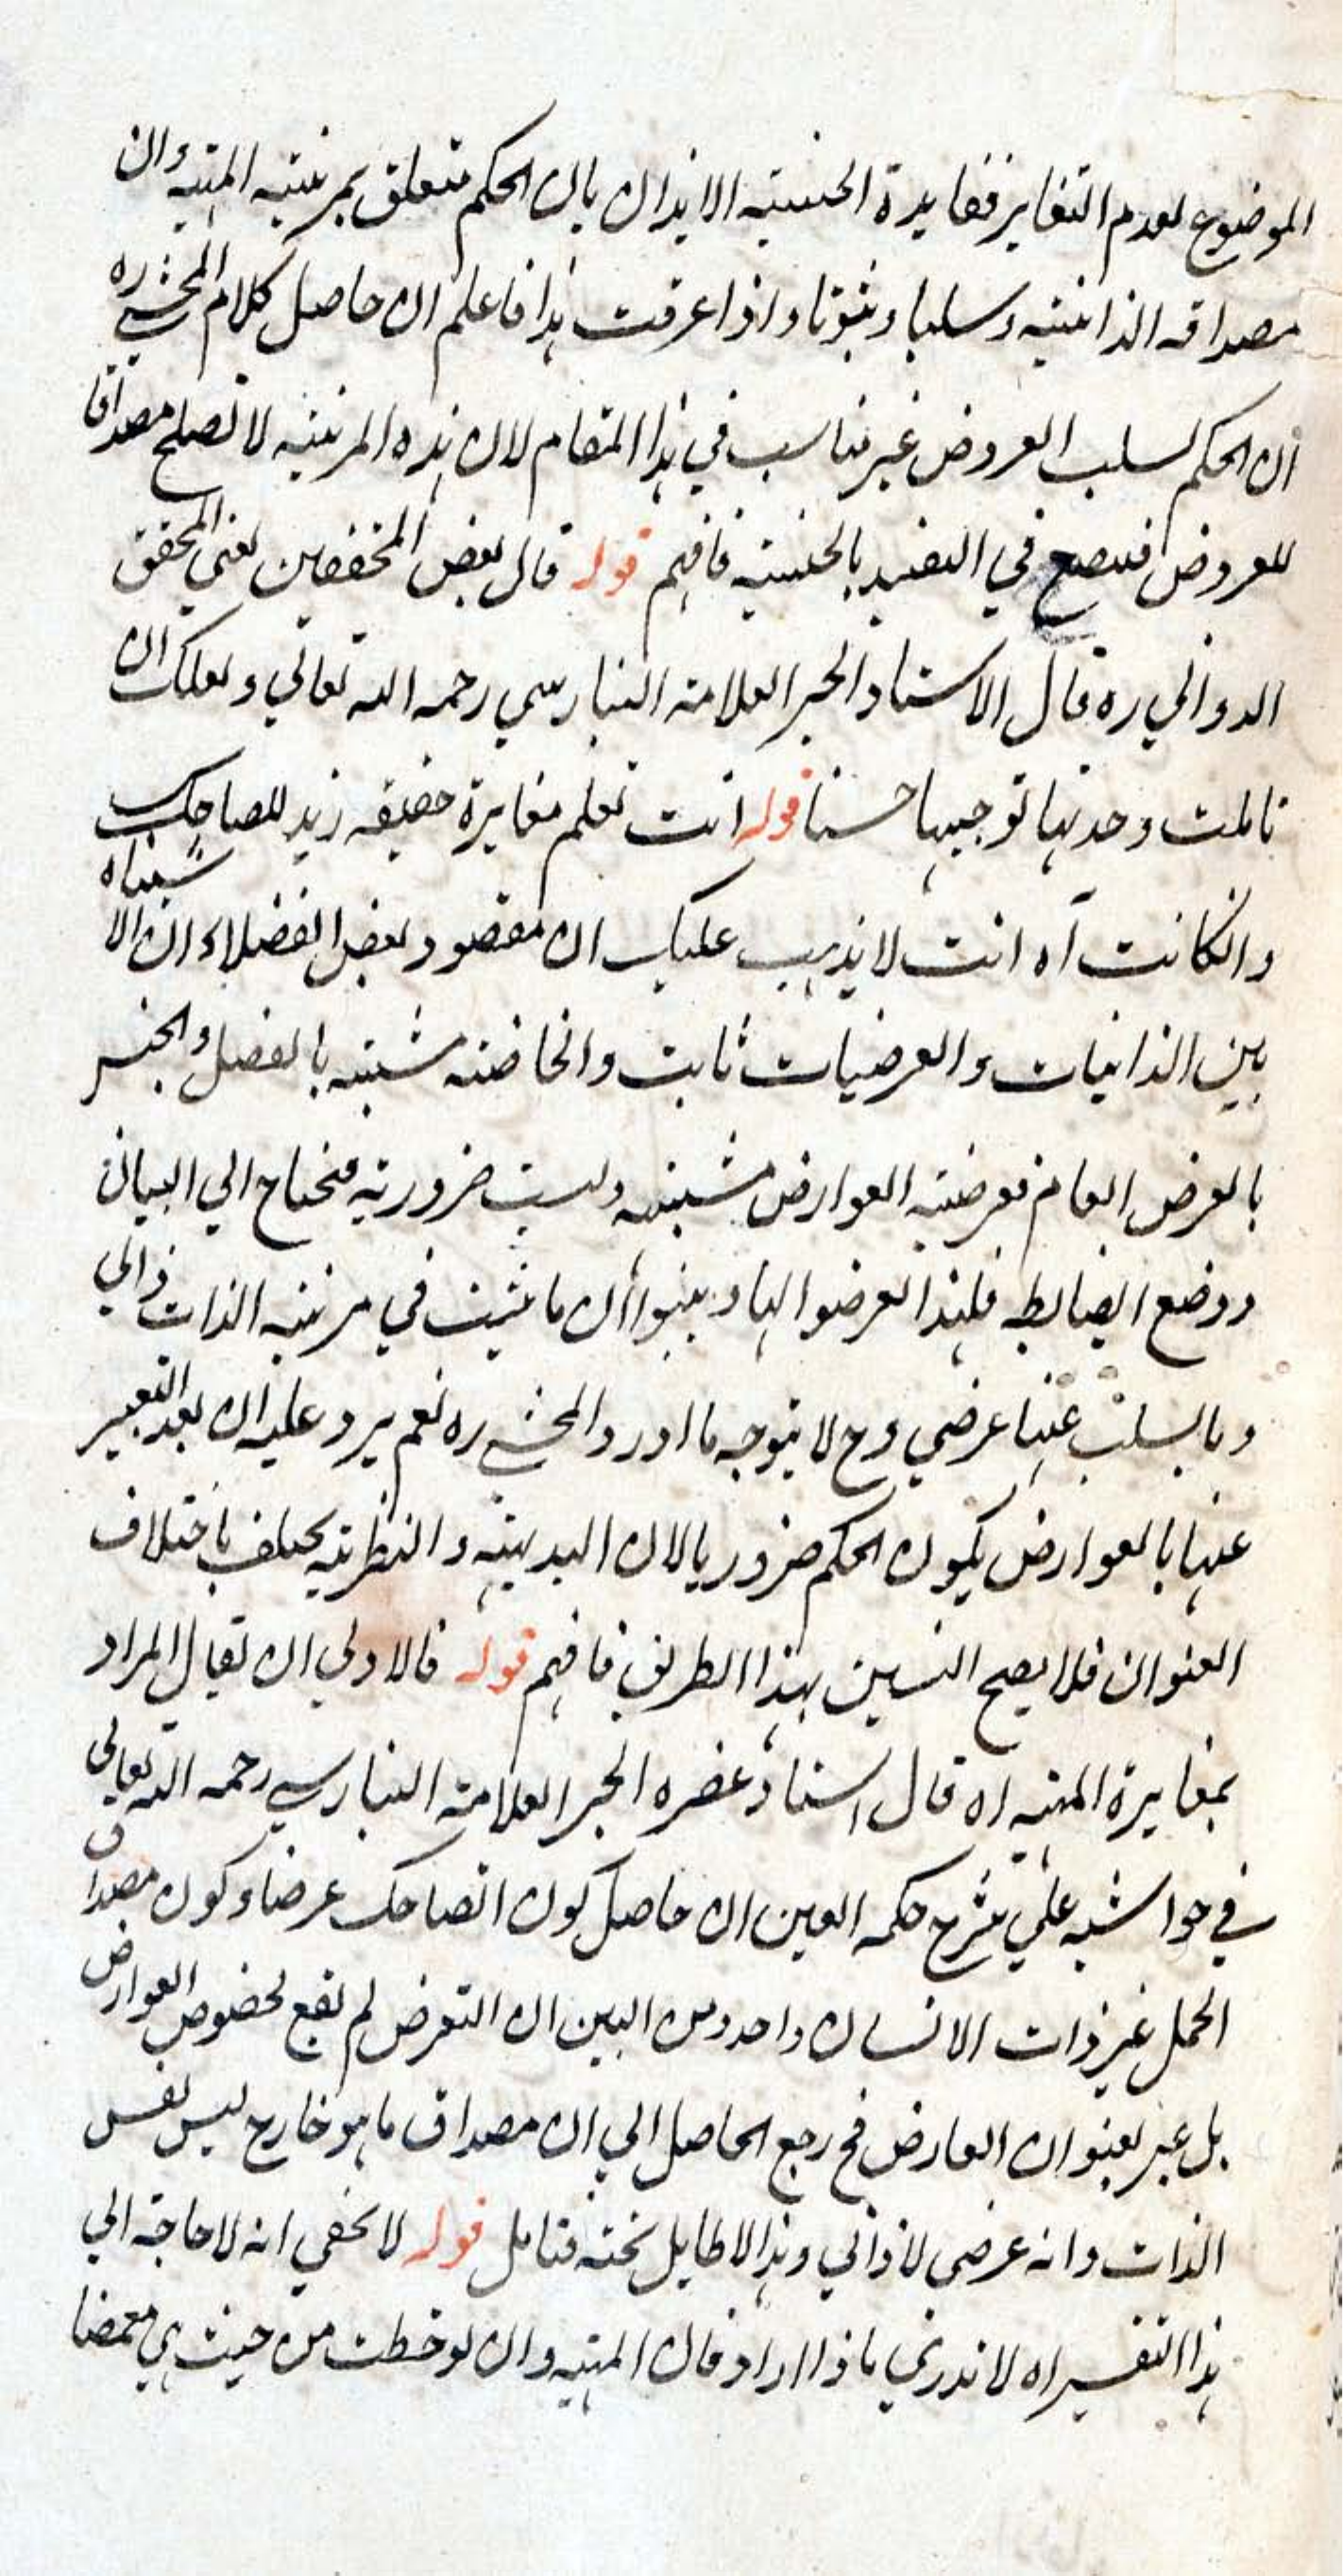 الموضوع لعدم التغاير ففايدة الحيثيته الايذان بان الحكم متعلق بمرتبته المهيته وان
مصداقه الذاتيته وسلبا وثبوتا واذا عرفت هذا فاعلم ان حاصل كلام المحشي ره
ان الحكم لسلب العروض غير مناسب في هذا المقام لان هذه المرتبته لا تصلح مصداقا
للعروض فيصح في التقييد بالحيثيته فافهم قوله قال بعض المحققين يعني المحقق
الدواني ره قال الاستاد الحبر العلامة البنارسي رحمه الله تعالي ولعلك ان
تاملت وجدتها توجيها حسنا قوله انت تعلم مغايرة حقيقه زيد للضاحك
وانكانت آه انت لا يذهب عليك ان مقصود بعض الفضلاء ان الاشتباه
بين الذاتيات والعرضيات ثابت والخاصته مشتبه بالفصل والجنس
بالعرض العام فعرضيته العوارض مشتبهه وليست ضروريته فتحتاج الي البيان
ووضع الضابطه فلهذا تعرضوا لها وبينوا ان ما يثبت في مرتبته الذات ذاتي
وما يسلب عنها عرضي وح لا يتوجه ما اورد المحشي ره نعم يرد عليه ان بعد التعبير
عنها بالعوارض يكون الحكم ضروريا لان البديهيته والنظريته يختلف باختلاف
العنوان فلا يصح التبيين بهذا الطريق فافهم قوله فالاولي ان يقال المراد
بمغايرة المهيه اه قال استاد عصره الحبر العلامة البنارسي رحمه الله تعالي
في حواشيه علي شرح حكمه العين ان حاصل كون الضاحك عرضا وكون مصداق
الحمل غير ذات الانسان واحد ومن البين ان التعرض لم يقع لخصوص العوارض
بل عبر بعنوان العارض فح رجع الحاصل الي ان مصداق ما هو خارج ليس نفس
الذات وانه عرضي لا ذاتي وهذا لا طايل تحته فتامل قوله لا يخفي انه لا حاجة الي
هذا التفسير اه لا ندري ما ذا اراد فان المهيه وان لوحظت من حيث هي